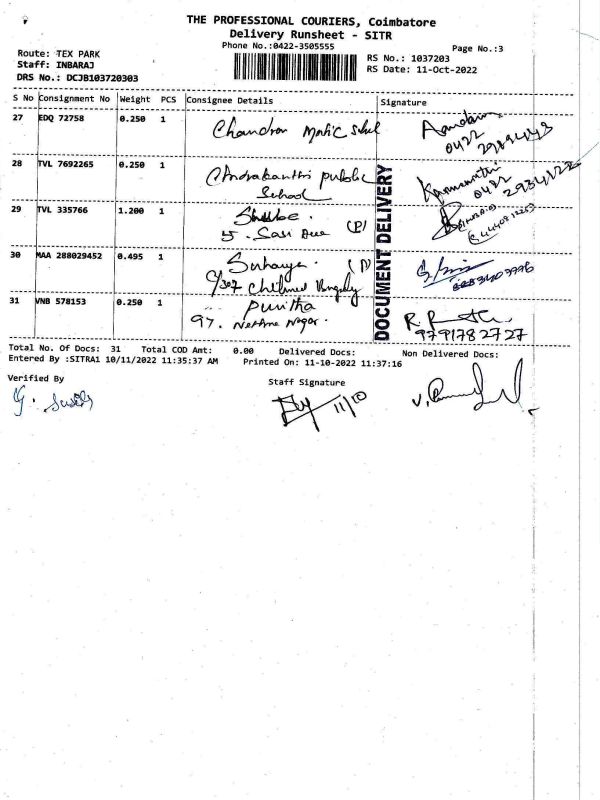 THE PROFESSIONAL COURIERS, Coimbatore
Delivery Runsheet - SITR
Phone No.:0422-3505555
Page No.:3
Route: TEX PARK
Staff: INBARAJ
DRS No.: DCJB103720303
RS No.: 1037203
RS Date: 11-Oct-2022
S No Consignment No Weight PCS Consignee Details Signature
27 EDQ 72758 0.250 1 Chandran Matic
0422
28 TVL 7692265 0.250 1 Chandrakanthi public
School
0422
29 TVL 335766 1.200 1
5. Sasi (P)
30 MAA 288029452 0.495 1 (P)
31 VNB 578153 0.250 1 Punitha
97. Nagar.
9791782727
DOCUMENT DELIVERY
Total No. Of Docs: 31 Total COD Amt: 0.00 Delivered Docs: Non Delivered Docs:
Entered By :SITRA1 10/11/2022 11:35:37 AM Printed On: 11-10-2022 11:37:16
Verified By
Staff Signature
11/10